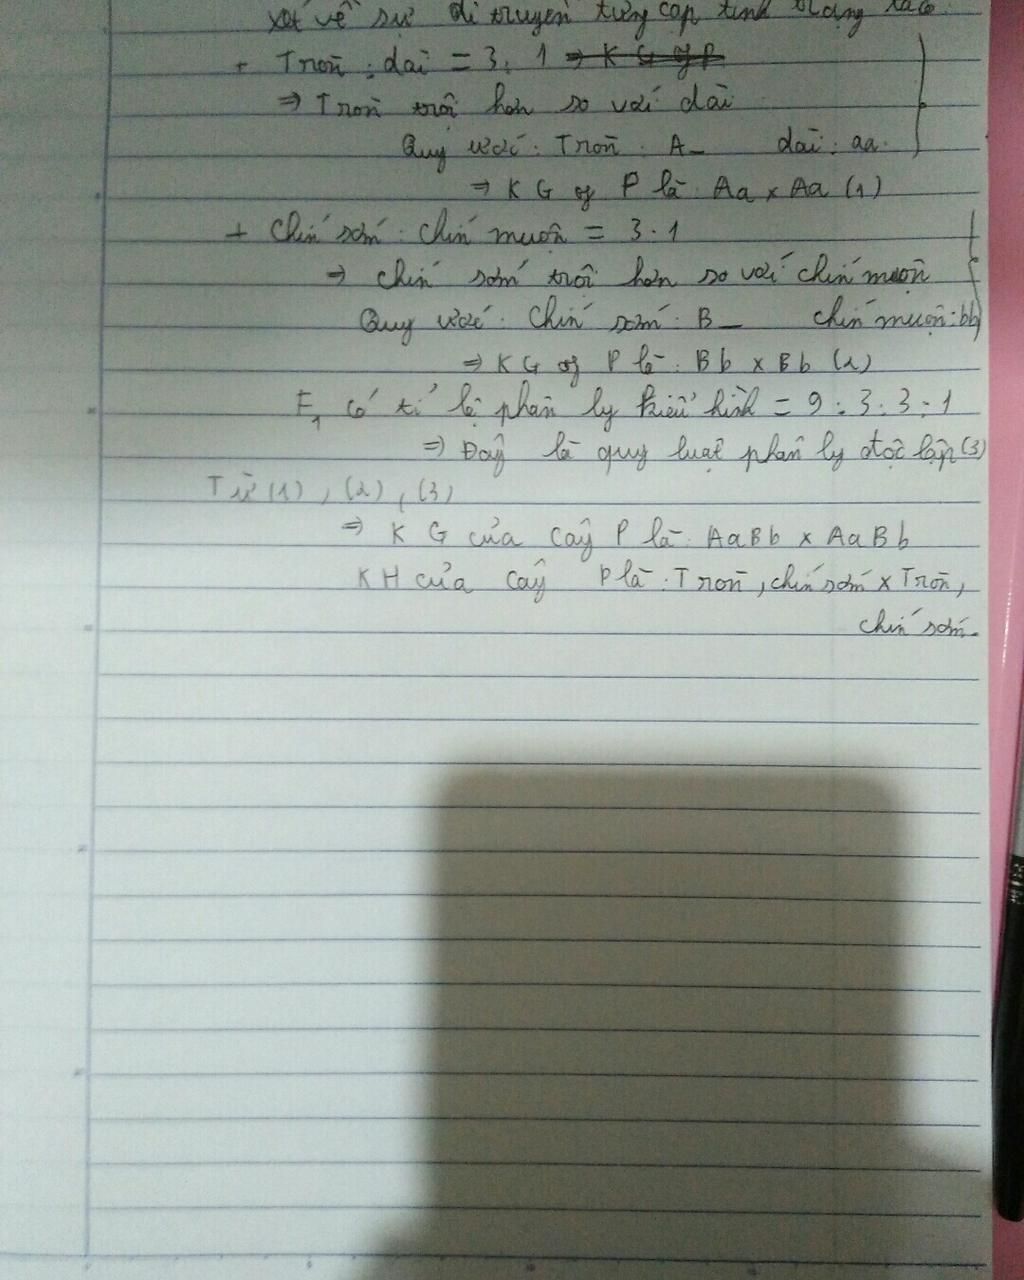 xét về sự di truyền từng cặp tính trạng
+ Tròn : dài = 3 : 1 ⇒ K G of P
⇒ Tròn trội hơn so với dài
Quy ước : Tròn : A_ dài : aa.
⇒ K G of P là : Aa x Aa (1)
+ Chín sớm : Chín muộn = 3 : 1
⇒ chín sớm trội hơn so với chín muộn
Quy ước : Chín sớm : B_ chín muộn : bb
⇒ K G of P là : Bb x Bb (2)
F1 có tỉ lệ phân ly kiểu hình = 9 : 3 : 3 : 1
⇒ Đây là quy luật phân ly độc lập (3)
Từ (1) , (2) , (3)
⇒ K G của cây P là : AaBb x AaBb
KH của cây P là : Tròn , chín sớm x Tròn ,
chín sớm.